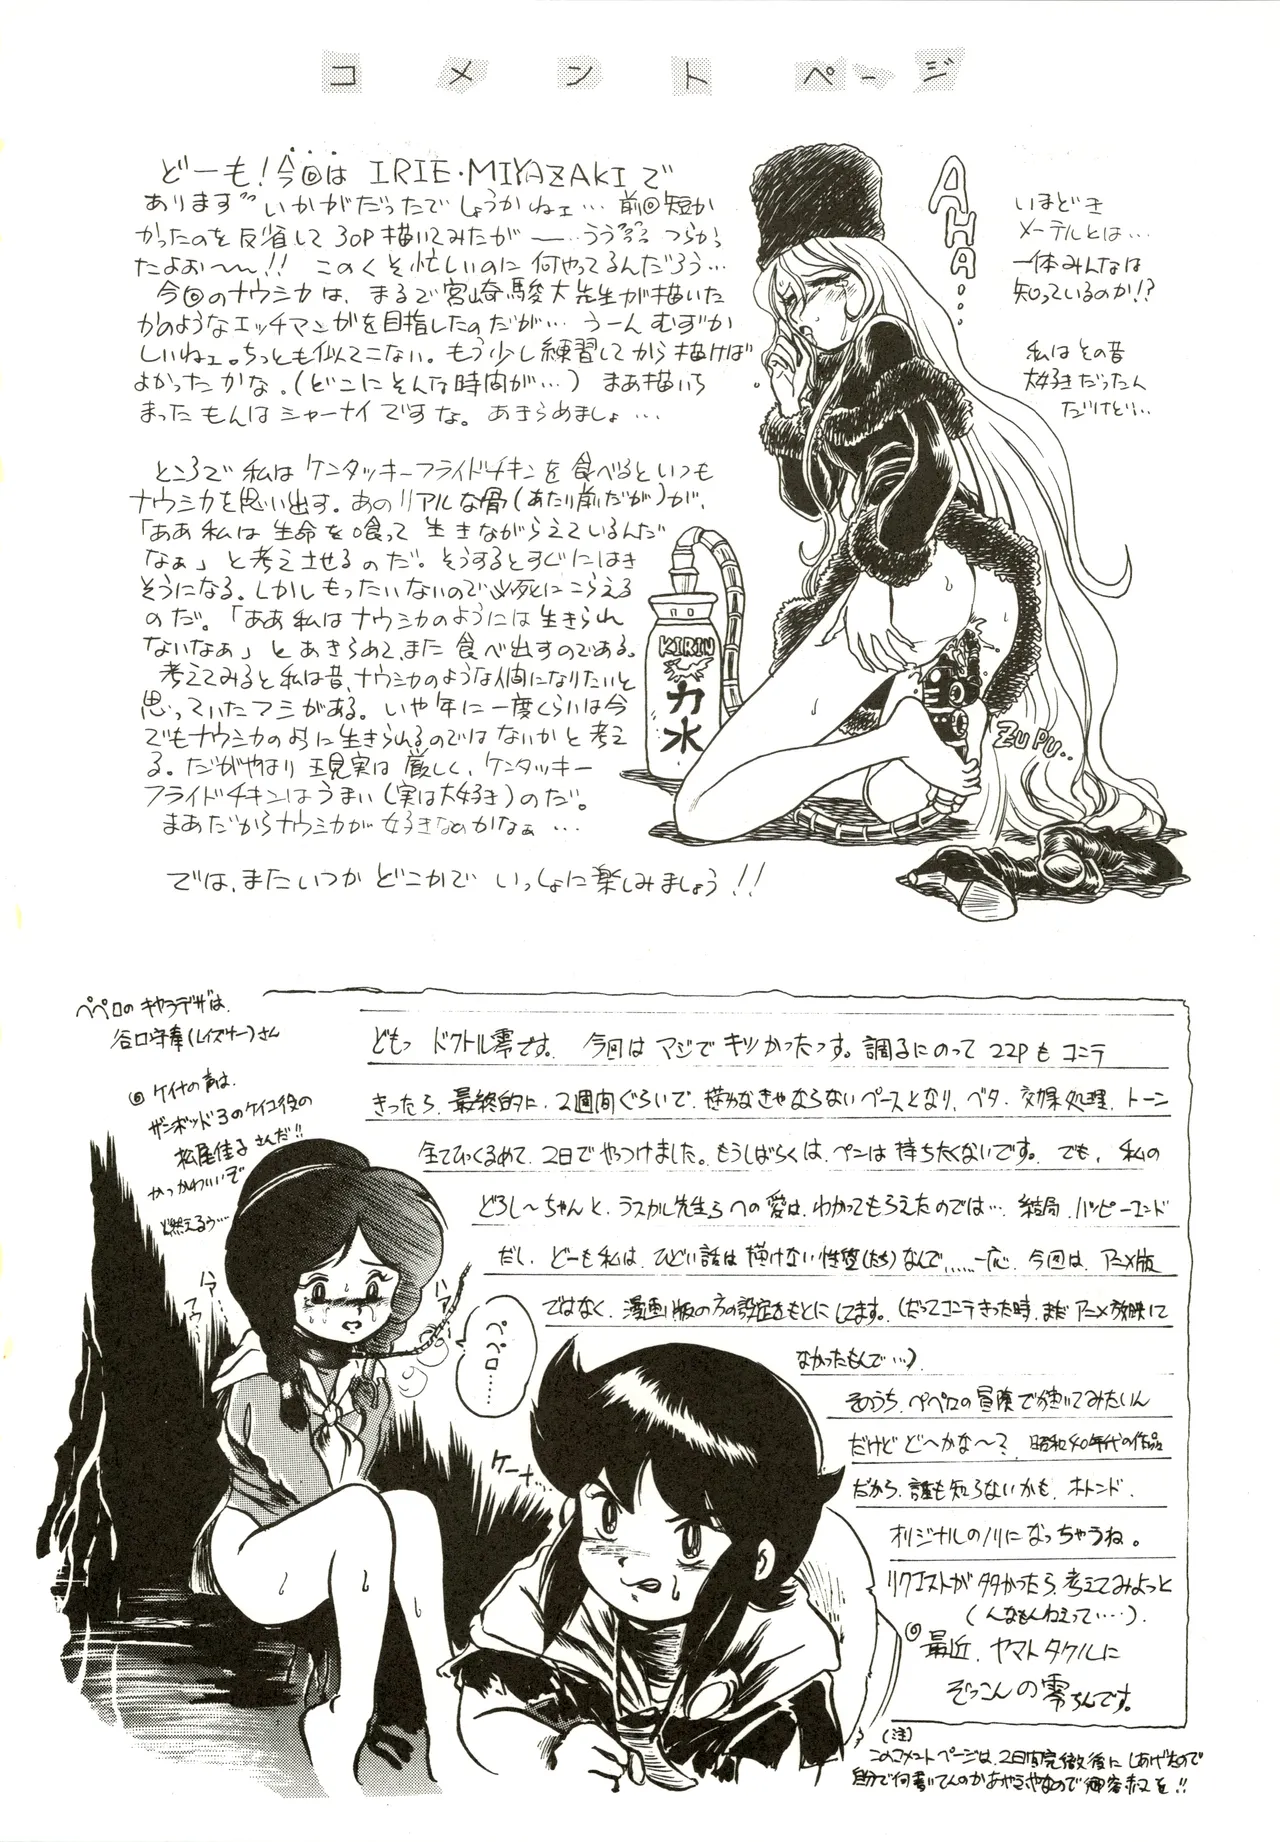 コメントページ
どーも!今回は IRIE・MIYAZAKIで
あります いかがだったでしょうかねェ… 前回短か
かったのを反省して 30P描いてみたが ――…うう つらかっ
たよお〜〜!! このくそ忙しいのに何やってるんだろう…
今回のナウシカは、まるで宮崎駿大先生が描いた
かのようなエッチマンガを目指したのだが… うーん むずか
しいねェ。ちっとも似てこない。もう少し練習してから描けば
よかったかな。(どこにそんな時間が…) まあ描いち
まったもんはシャーナイですな。あきらめましょ…
ところで私はケンタッキーフライドチキンを食べるといつも
ナウシカを思い出す。あのリアルな骨(あたり前だが)が、
「ああ私は生命を喰って生きながらえているんだ
なぁ」と考えさせるのだ。そうするとすぐにはき
そうになる。しかしもったいないので必死にこらえる
のだ。「ああ私はナウシカのようには生きられ
ないなぁ」とあきらめて、また食べ出すのである。
考えてみると私は昔、ナウシカのような人間になりたいと
思っていたフシがある。いや年に一度くらいは今
でもナウシカのように生きられるのではないかと考え
る。だがやはり現実は厳しく、ケンタッキー
フライドチキンはうまい(実は大好き)のだ。
まあだからナウシカが好きなのかなぁ…
では、またいつかどこかでいっしょに楽しみましょう!!
AHA…
いまどき
メーテルとは…
一体みんなは
知っているのか!?
私はその昔
大好きだったん
だけど…
KIRIN
力水
ZUPU..
ペペロのキャラデザは、
谷口守泰(レイズナー)さん
◎ケイナの声は、
ザンボット3のケイコ役の
松尾佳子さんだ!!
かっかわいいぞ
燃えるぅ…
ハァ…
ハァ
ペペロ…
ケーナ…
どもっ ドクトル零です。 今回はマジでキツかったっす。調るにのって22Pもコンテ
きったら、最終的に、2週間ぐらいで、描かなきゃならないペースとなり、ベタ、効果処理、トーン
全てひっくるめて、2日でやっつけました。もうしばらくは、ペンは持ちたくないです。でも、私の
どろし〜ちゃんと、ラスカル先生らへの愛は、わかってもらえたのでは… 結局、ハッピーエンド
だし、どーも私は、ひどい話は描けない性壁(たち)なんで……一応、今回は、アニメ版
ではなく、漫画版の方の設定をもとにしてます。(だってコンテきった時、まだアニメ放映して
なかったもんで…)
そのうち、ペペロの冒険でか書いてみたいん
だけどど〜かな〜? 昭和40年代の作品
だから、誰も知らないかも、ホトンド、
オリジナルのノリになっちゃうね。
リクエストが多かったら、考えてみよっと
(んなもんねえって…)
◎最近、ヤマトタケルに
ぞっこんの零ちんです。
(注)
このコメントページは、2日間完徹後にしあげたので
自分で何書いてんのかあやふやなので御容赦を!!